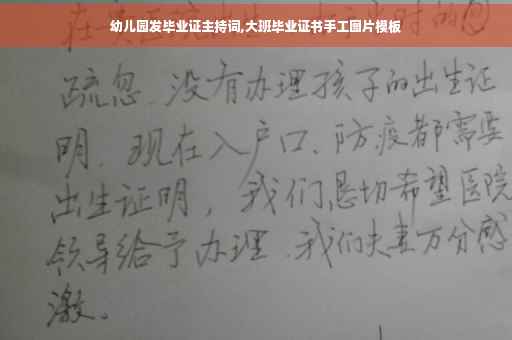 幼儿园发毕业证主持词,大班毕业证书手工图片模板
疏忽、没有办理孩子的出生证
明、现在入户口、防疫都需要
出生证明，我们恳切希望医院
领导给予办理、我们夫妻万分感
激。